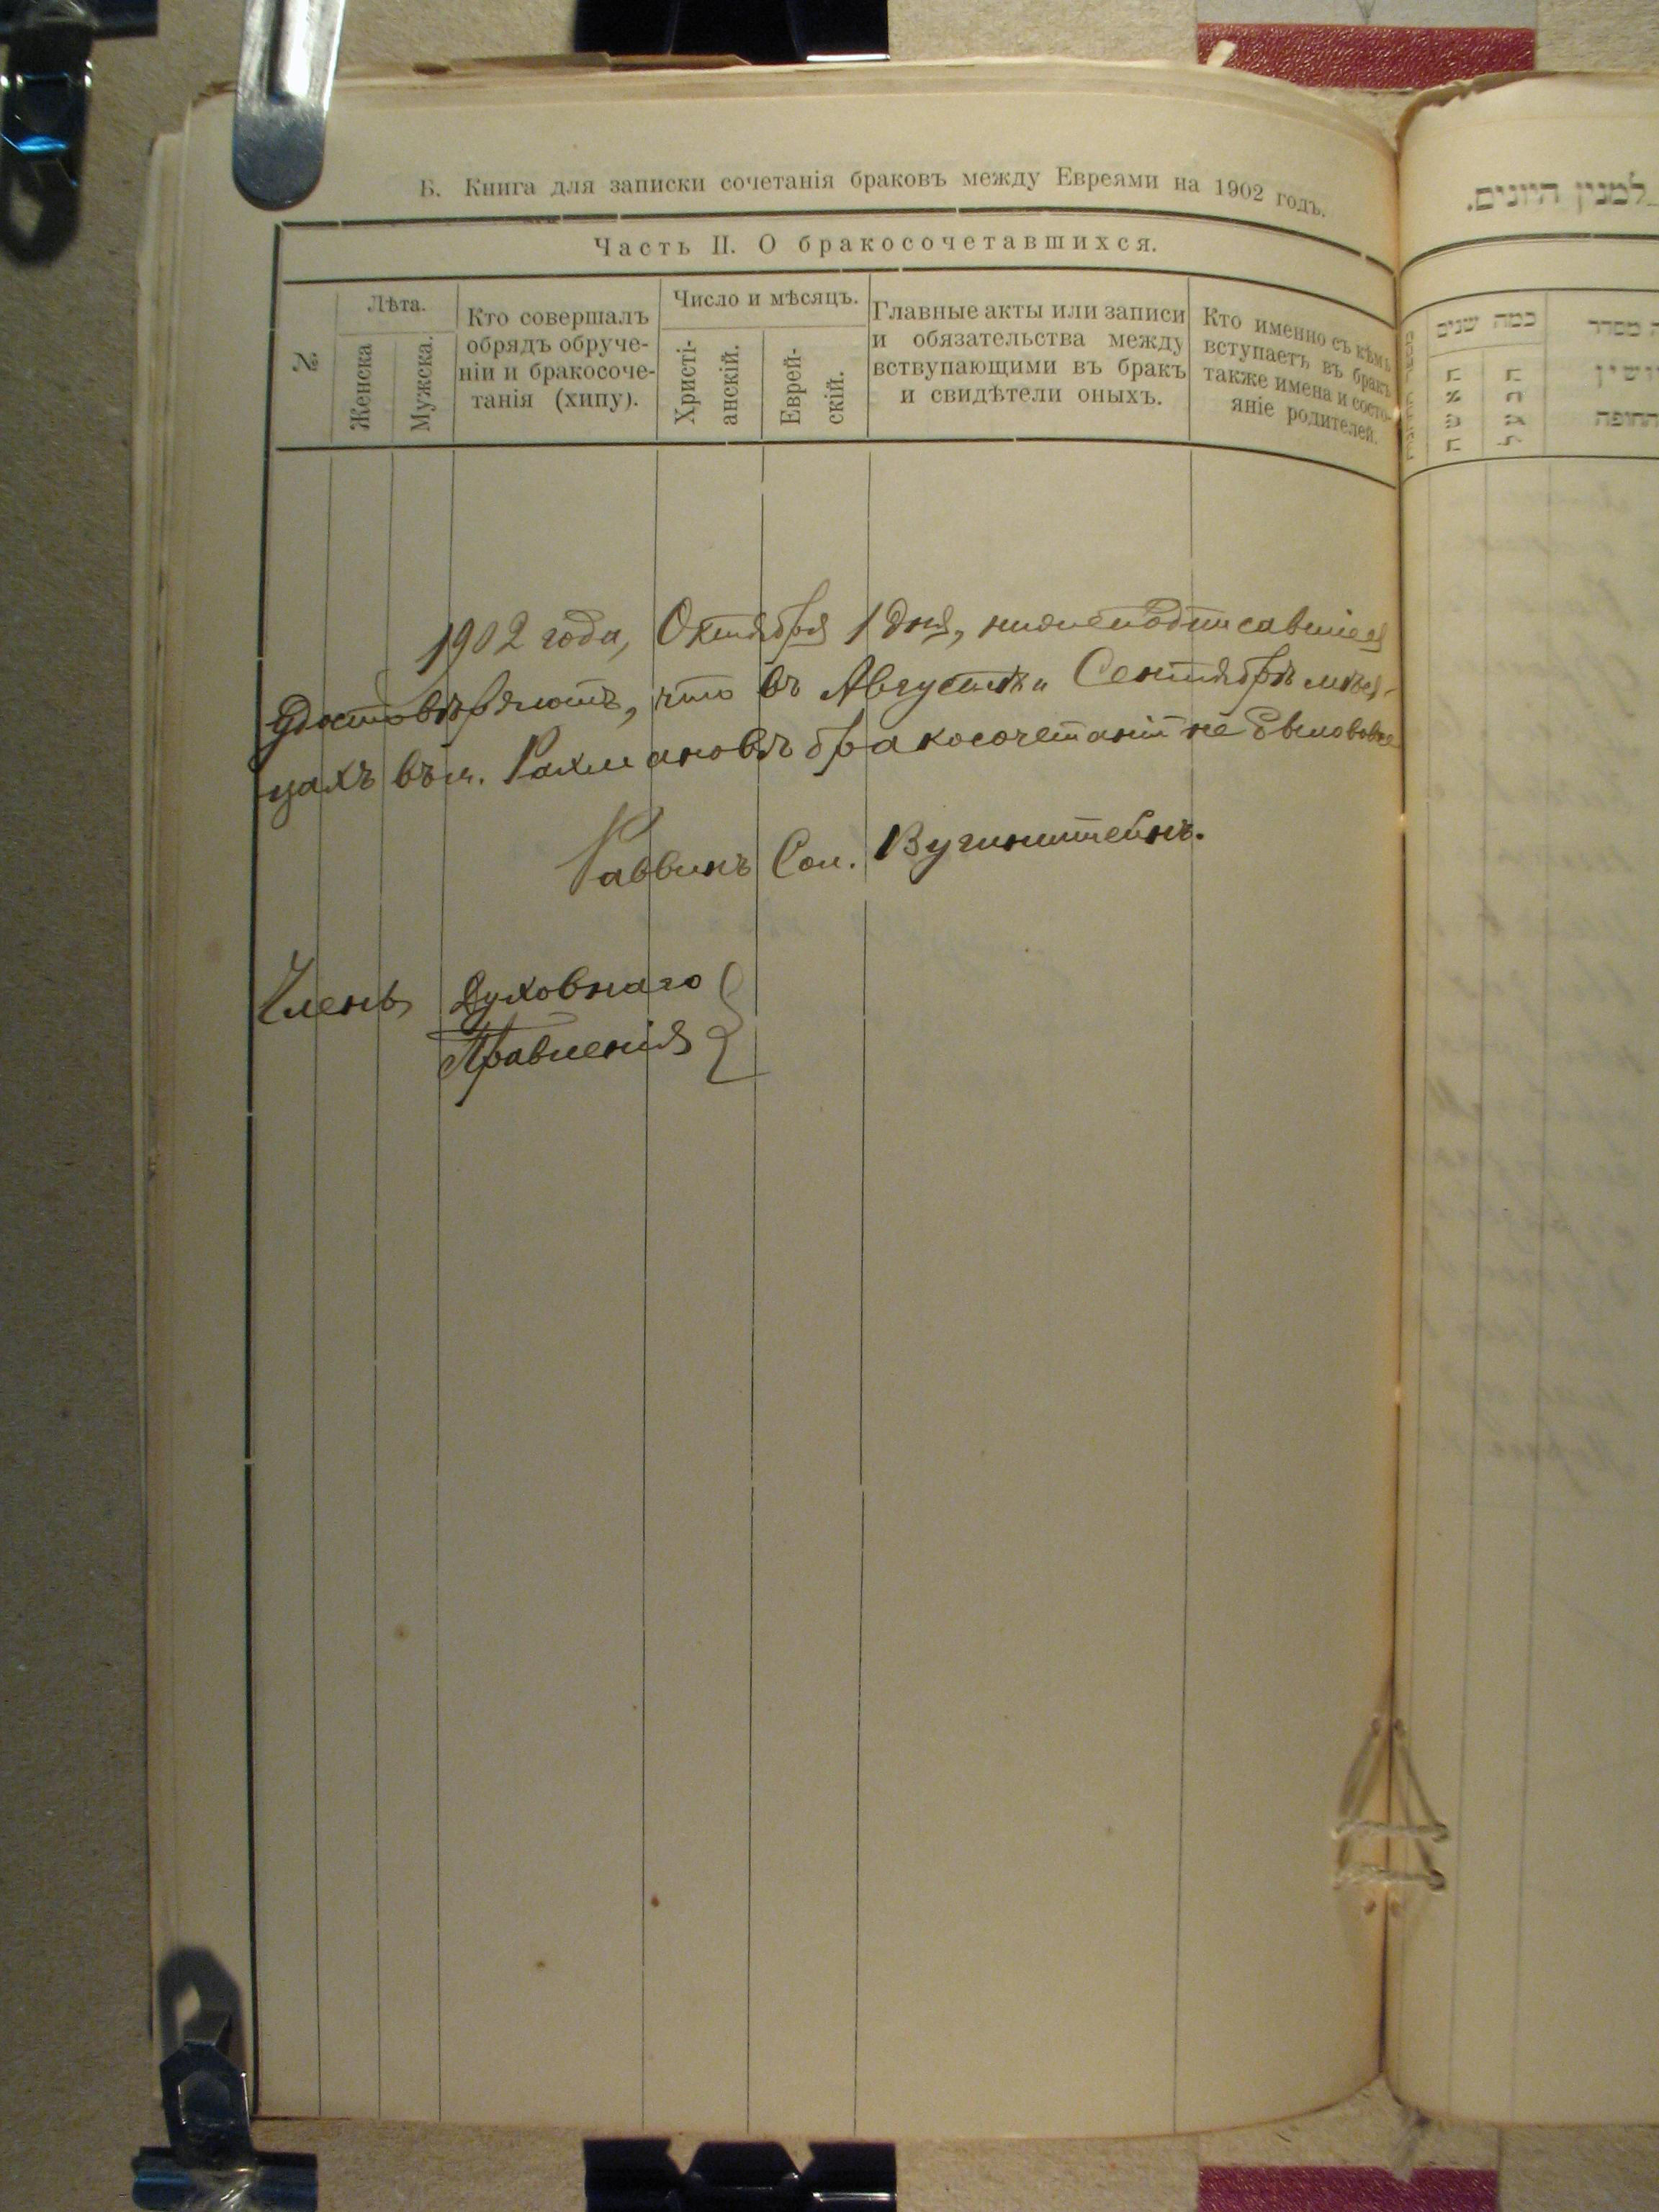 Б. Книга для записки сочетанія браковъ между Евреями на 1902 годъ.
Часть II. О бракосочетавшихся.
№
Лѣта.
Женска
Мужска.
Кто совершалъ
обрядъ обруче-
ніи и бракосоче-
танія (хипу).
Число и мѣсяцъ.
Христі-
анскій.
Еврей-
скій.
Главные акты или записи
и обязательства между
вствупающими въ бракъ
и свидѣтели оныхъ.
Кто именно съ кѣмъ
вступаетъ въ бракъ
также имена и состо-
яніе родителей.
1902 года, Октября 1 дня, нижеподписавшіеся
удостовѣряютъ, что въ Августѣ и Сентябрѣ мѣся-
цахъ въ м. Рахмановѣ бракосочетаній не было вовсе
Раввинъ Сол.
Членъ Духовнаго
Правленія
למנין היונים.
כמה שנים